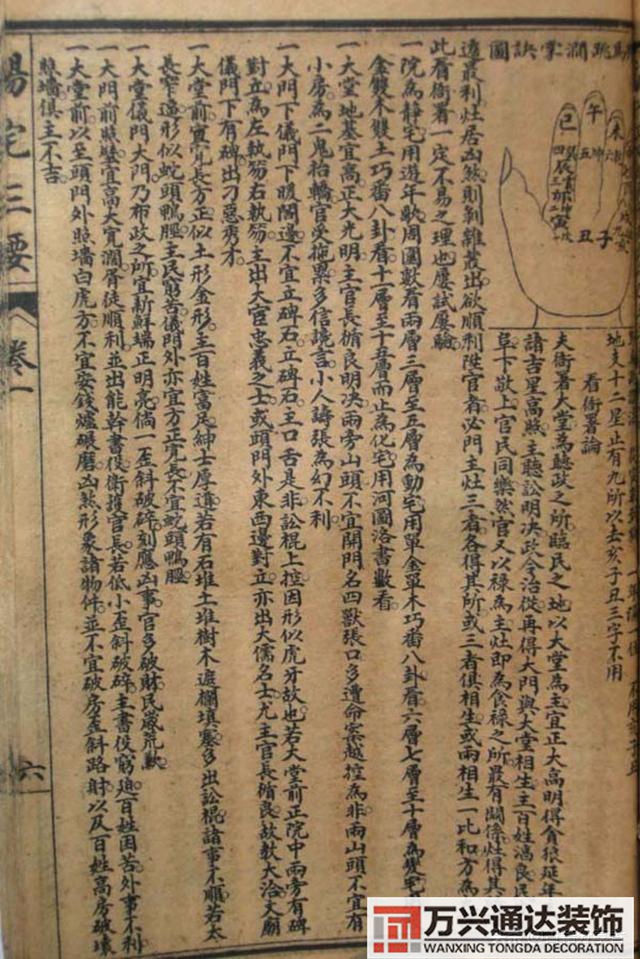 馬跳澗掌訣圖
未
午
巳
丑
子
地支十二星止有九所以去亥子丑三字不用
看衙署論
夫衙署大堂為聽政之所臨民之地以大堂為主宜正大高明得貪狼延年
諸吉星高照主聽訟明決政令治從再得大門與大堂相生主百姓
阜下敬上官民同樂然官又以祿為主灶即為食祿之所最有關係灶得其
遭最利灶居凶煞則剝雜叢出欲順利陞官者必門主灶三者各得其所或三者俱相生或兩相生一比和方為
此看衙署一定不易之理也屢試屢驗
一院為靜宅用遊年歌周圍數看兩層三層至五層為動宅用單金單木巧番八卦看六層七層至十層為變宅
金雙木雙土巧番八卦看十一層至十五層而止為化宅用河圖洛書數看
一大堂地基宜高正大光明主官長循良明決兩旁山頭不宜開門名四獸張口多遭命案越控為非兩山頭不宜有
小房為二鬼抬轎官受拖累多信讒言小人譸張為幻不利
一大門下儀門下暖閣邊不宜立碑石立碑石主口舌是非訟棍上控因形似虎牙故也若大堂前正院中兩旁有碑
對立為左執笏右執笏主出大官忠義之士或頭門外東西邊對立亦出大儒名士尤主官長循良故教大洽文廟
儀門下有碑出刁惡秀才
一大堂前宜寬長方正似土形金形主百姓富足紳士厚道若有石堆土堆樹木遮攔填塞多出訟棍諸事不順若太
長窄邊形似蛇頭鴨脰主民窮苦儀門外亦宜方正寬長不宜蛇頭鴨脰
一大堂儀門大門乃布政之所宜新鮮端正明亮倘一歪斜破碎刻應凶事官多破財民歲荒歉
一大門前照墻宜高大寬濶胥徒順利並出能幹書役衛護官長若低小歪斜破碎主書役窮迫百姓困苦外事不利
一大堂前以至頭門外照墻白虎方不宜安錢爐碾磨凶煞形象諸物件並不宜破房歪斜路射以及百姓高房破壞
照墻俱主不吉
陽宅三要
卷一
六
万兴通达装饰
WANXING TONGDA DECORATION